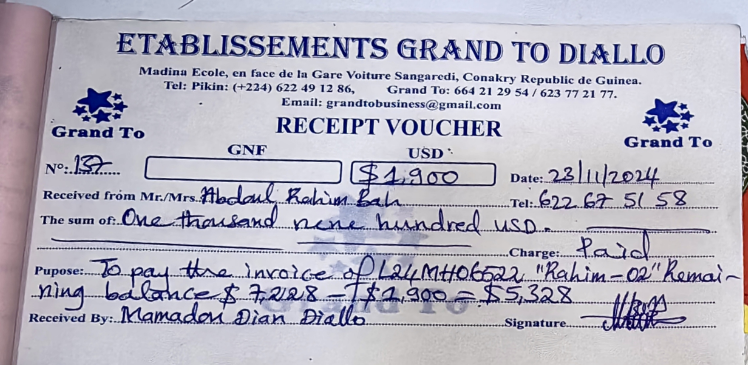 ETABLISSEMENTS GRAND TO DIALLO
Madina Ecole, en face de la Gare Voiture Sangaredi, Conakry Republic de Guinea.
Tel: Pikin: (+224) 622 49 12 86, Grand To: 664 21 29 54 / 623 77 21 77.
Email: grandtobusiness@gmail.com
Grand To
RECEIPT VOUCHER
Grand To
GNF USD
N°: 137 $1,900 Date: 23/11/2024
Received from Mr./Mrs Abdoul Rahim Bah Tel: 622 67 51 58
The sum of: One thousand nine hundred USD.
Charge: Paid
Pupose: To pay the invoice of L24MH06522 "Rahim-02" Remai-
ning balance $ 7,228 - $1,900 = $5,328
Grand To
Received By: Mamadou Dian Diallo Signature